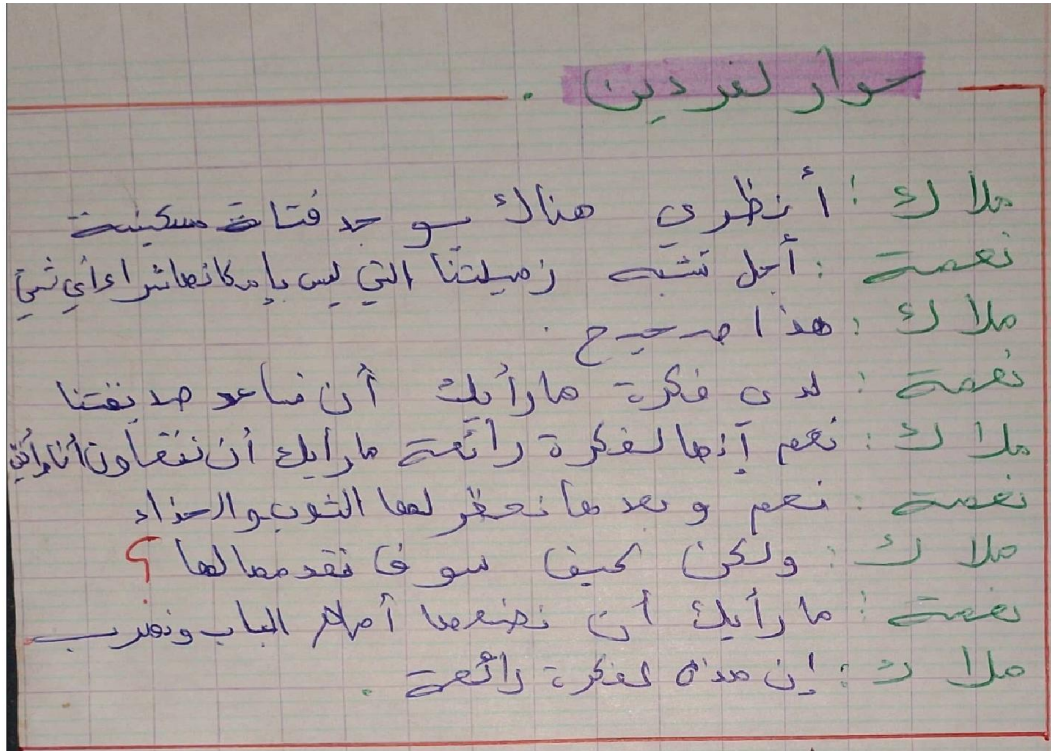 حوار لفردين .
ملاك : أنظري هناك سوجد فتاة مسكينة
نعمة : أجل تشبه زميلتنا التي ليس بإمكانها شراء أي شيئ
ملاك : هذا صحيح .
نعمة : لدى فكرة ما رأيك أن نساعد صديقتنا
ملاك : نعم إنها لفكرة رائعة ما رأيك أن نتعاون أنا وأنت
نعمة : نعم وبعدها نحظر لها الثوب والحذاء
ملاك : ولكن كيف سوف نقدمها لها ؟
نعمة : ما رأيك أن نضعها أمام الباب ونهرب
ملاك : إن هذه لفكرة رائعة .